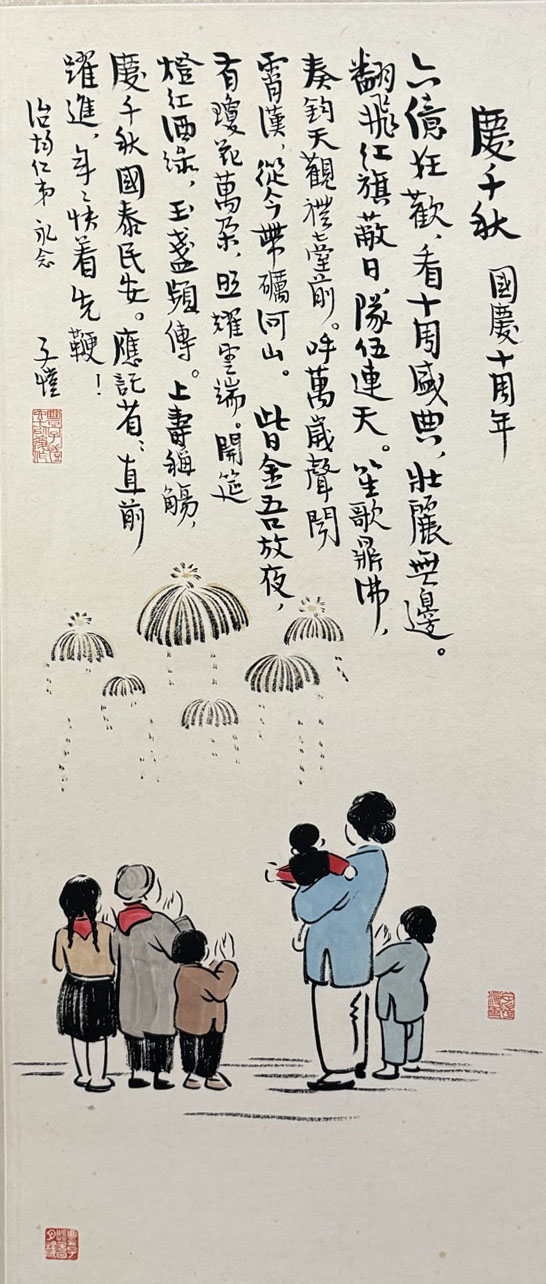 慶千秋 國慶十周年
六億狂歡，看十周盛典，壯麗無邊。
翻飛紅旗蔽日，隊伍連天。笙歌鼎沸，
奏鈞天觀禮臺前。呼萬歲聲聞
霄漢，從今帶礪河山。此日金吾放夜，
有瓊花萬朵，照耀雲端。開筵
燈紅酒綠，玉盞頻傳。上壽稱觴，
慶千秋國泰民安。應記省、直前
躍進，年〻快着先鞭！
治均仁弟 永念 子愷